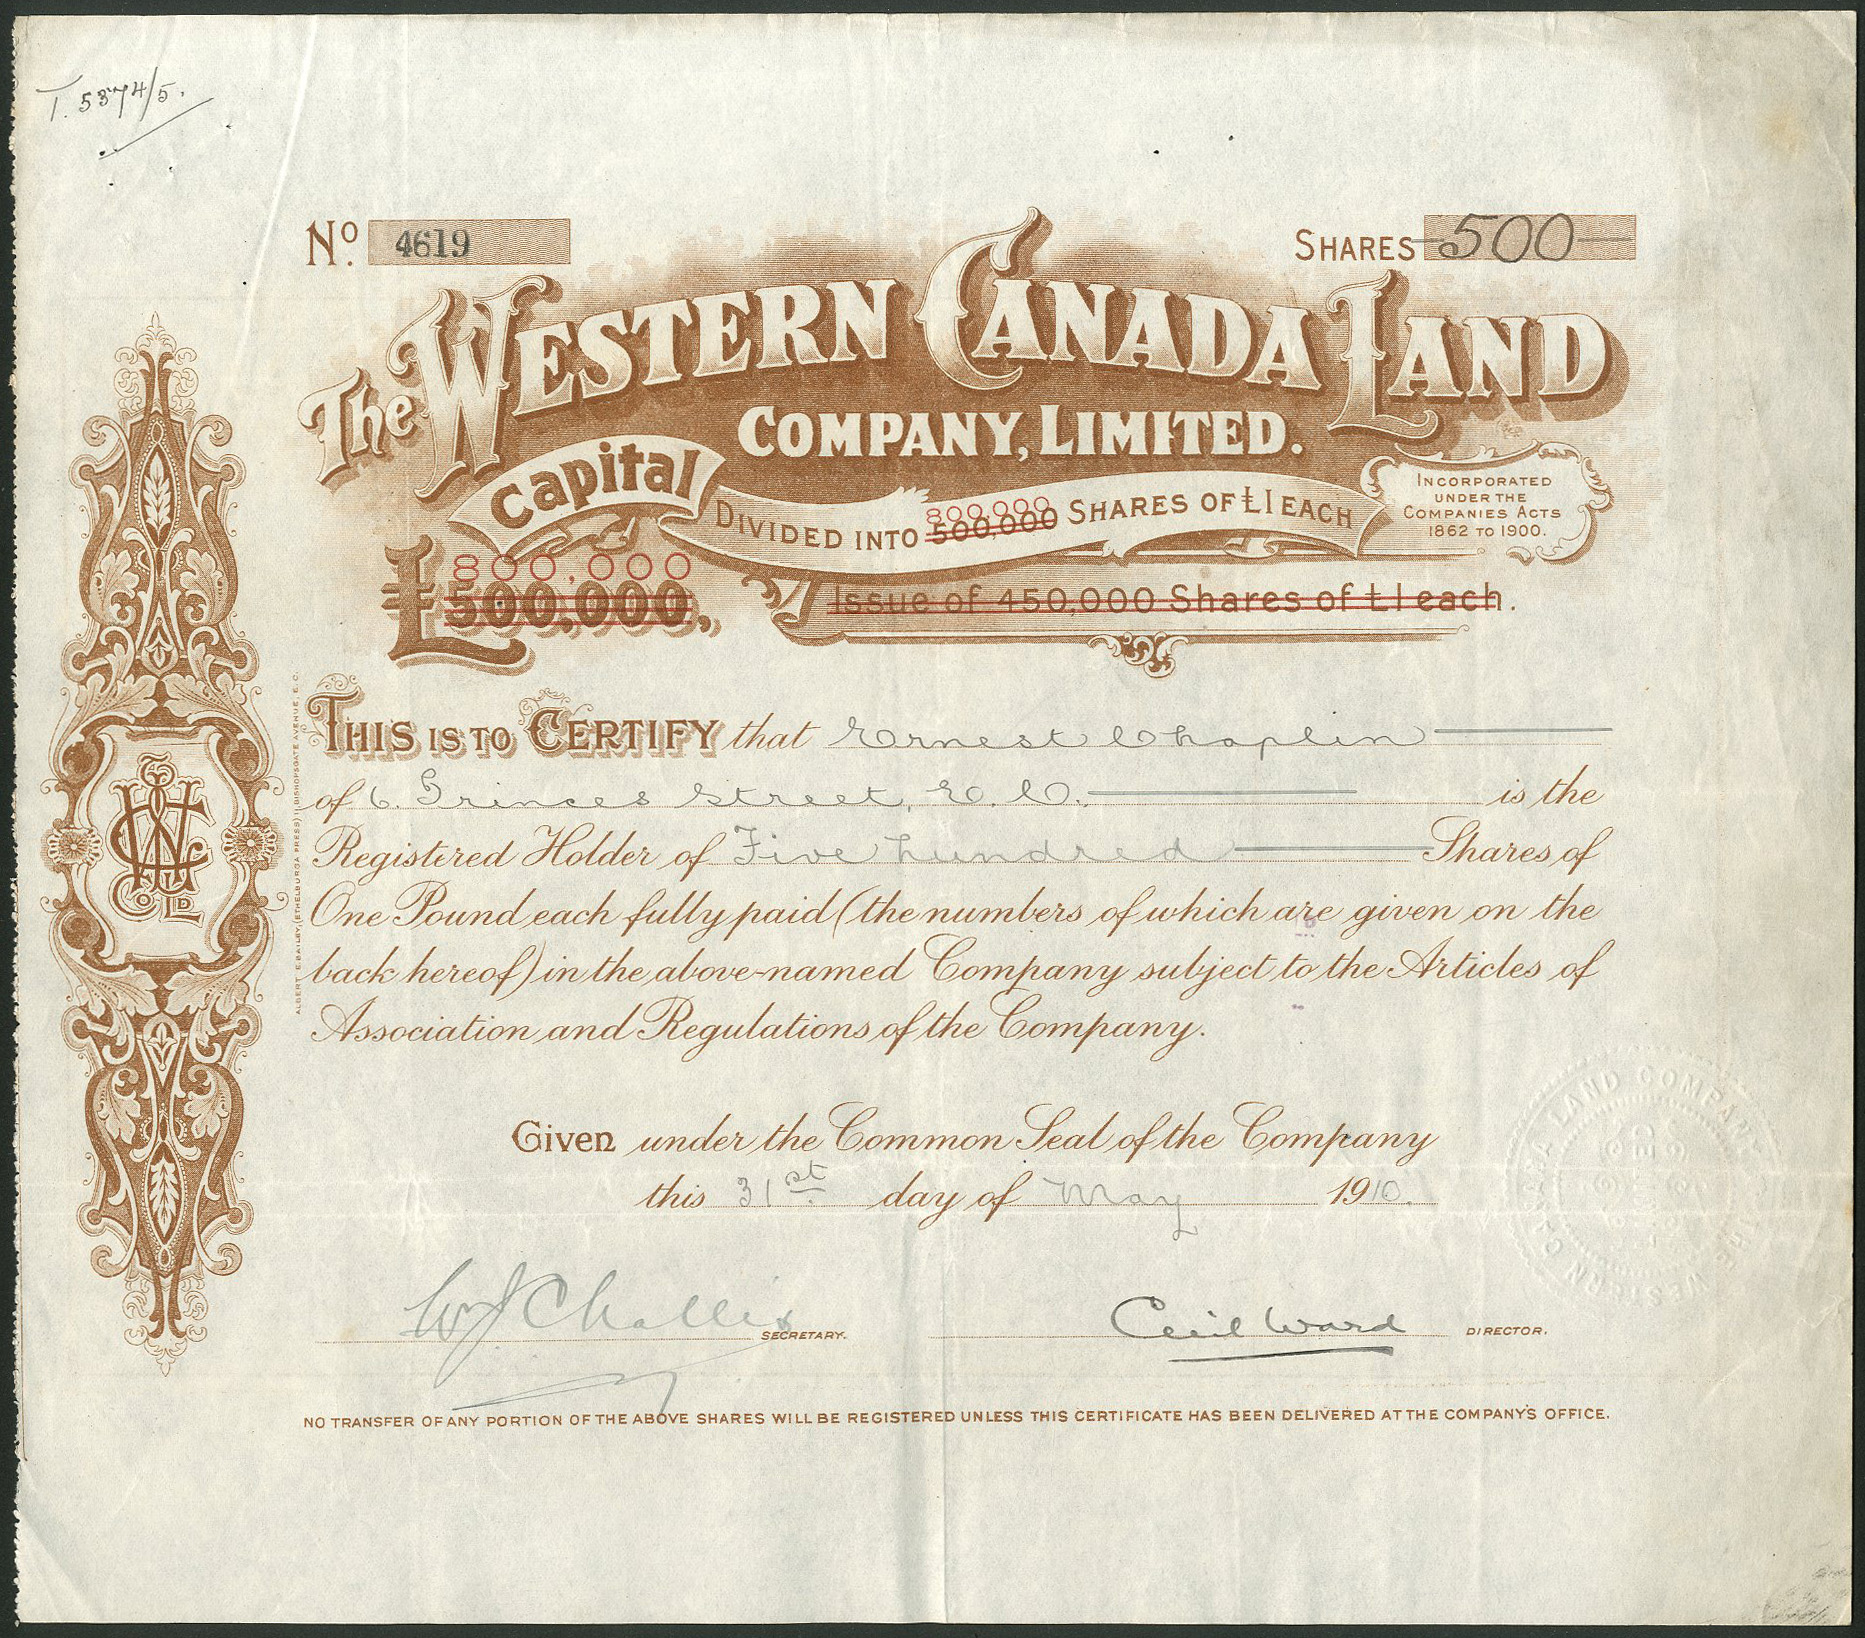 T. 5374/5.
No. 4619
SHARES 500
The WESTERN CANADA LAND
COMPANY, LIMITED.
Capital
DIVIDED INTO 800,000 500,000 SHARES OF £1 EACH
INCORPORATED
UNDER THE
COMPANIES ACTS
1862 TO 1900.
£ 800,000
500,000,
Issue of 450,000 Shares of £1 each.
THIS IS TO CERTIFY that Ernest Chaplin
of 6. Princes Street, E.C. is the
Registered Holder of Five hundred Shares of
One Pound each fully paid (the numbers of which are given on the
back hereof) in the above-named Company subject to the Articles of
Association and Regulations of the Company.
Given under the Common Seal of the Company
this 31st day of May 1910.
W J Challis SECRETARY.
Cecil Ward DIRECTOR.
NO TRANSFER OF ANY PORTION OF THE ABOVE SHARES WILL BE REGISTERED UNLESS THIS CERTIFICATE HAS BEEN DELIVERED AT THE COMPANY'S OFFICE.
ALBERT E. BAILEY, (ETHELBURGA PRESS) 11, BISHOPSGATE AVENUE, E.C.
THE WESTERN CANADA LAND COMPANY